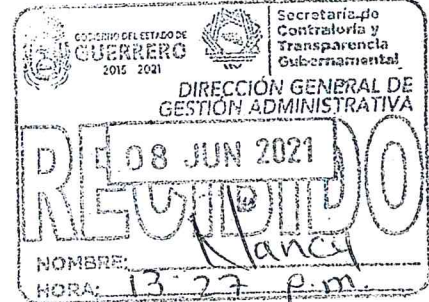 GOBIERNO DEL ESTADO DE
GUERRERO
2015 2021
Secretaría de
Contraloría y
Transparencia
Gubernamental
DIRECCIÓN GENERAL DE
GESTIÓN ADMINISTRATIVA
RECIBIDO
08 JUN 2021
NOMBRE: Nancy
HORA: 13:27 p.m.